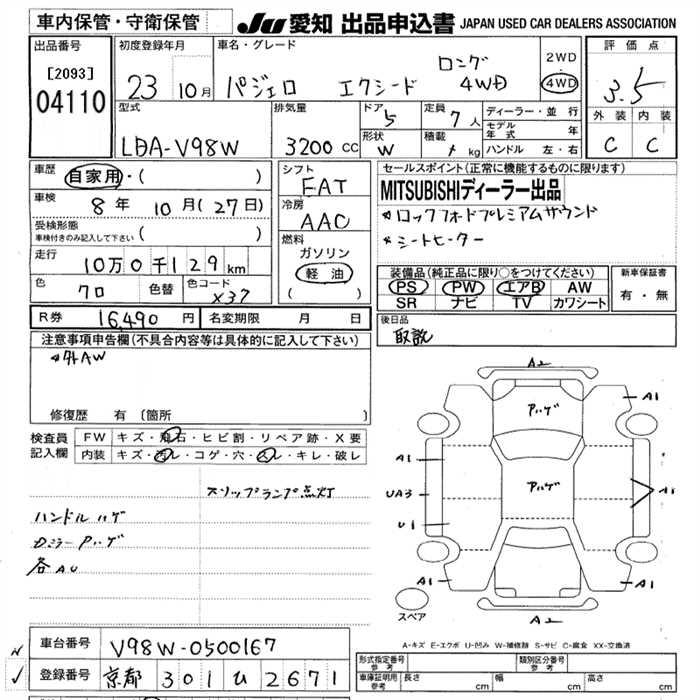 車内保管・守衛保管
JU 愛知 出品申込書 JAPAN USED CAR DEALERS ASSOCIATION
出品番号
[2093]
04110
初度登録年月
23 10月
車名・グレード
パジェロ エクシード ロング 4WD
2WD
4WD
評価点
3.5
外装 内装
C C
型式
LDA-V98W
排気量
3200 cc
ドア
5
定員
7人
形状
W
積載
kg
ディーラー・並行
モデル年式 年
ハンドル 左・右
車歴
自家用・( )
車検
8年 10月(27日)
受検形態
車検付きのみ記入して下さい ( )
走行
10万0千129km
色
クロ
色替
色コード
X37
シフト
FAT
冷房
AAC
燃料
ガソリン
軽油
( )
セールスポイント(正常に機能するものに限ります)
MITSUBISHIディーラー出品
*ロックフォードプレミアムサウンド
*シートヒーター
装備品(純正品に限り○をつけてください)
PS PW エアB AW
SR ナビ TV カワシート
新車保証書
有・無
R券 16,490 円 名変期限 月 日
後日品
取説
注意事項申告欄(不具合内容等は具体的に記入して下さい)
*外AW
修復歴 有 [箇所 ]
検査員記入欄
FW キズ・飛石・ヒビ割・リペア跡・X要
内装 キズ・汚レ・コゲ・穴・スレ・キレ・破レ
スリップランプ点灯
ハンドルハゲ
Dミラー Pハゲ
各AU
A2
Pハゲ
A1
A1
UA3
Pハゲ
A1
U1
A1
A1
スペア
A2
A-キズ E-エクボ U-凹み W-補修跡 S-サビ C-腐食 XX-交換済
車台番号 V98W-0500167
登録番号 京都 301 ひ 2671
形式指定番号 参考
類別区分番号 参考
車庫証明用参考
長さ cm 幅 cm 高さ cm